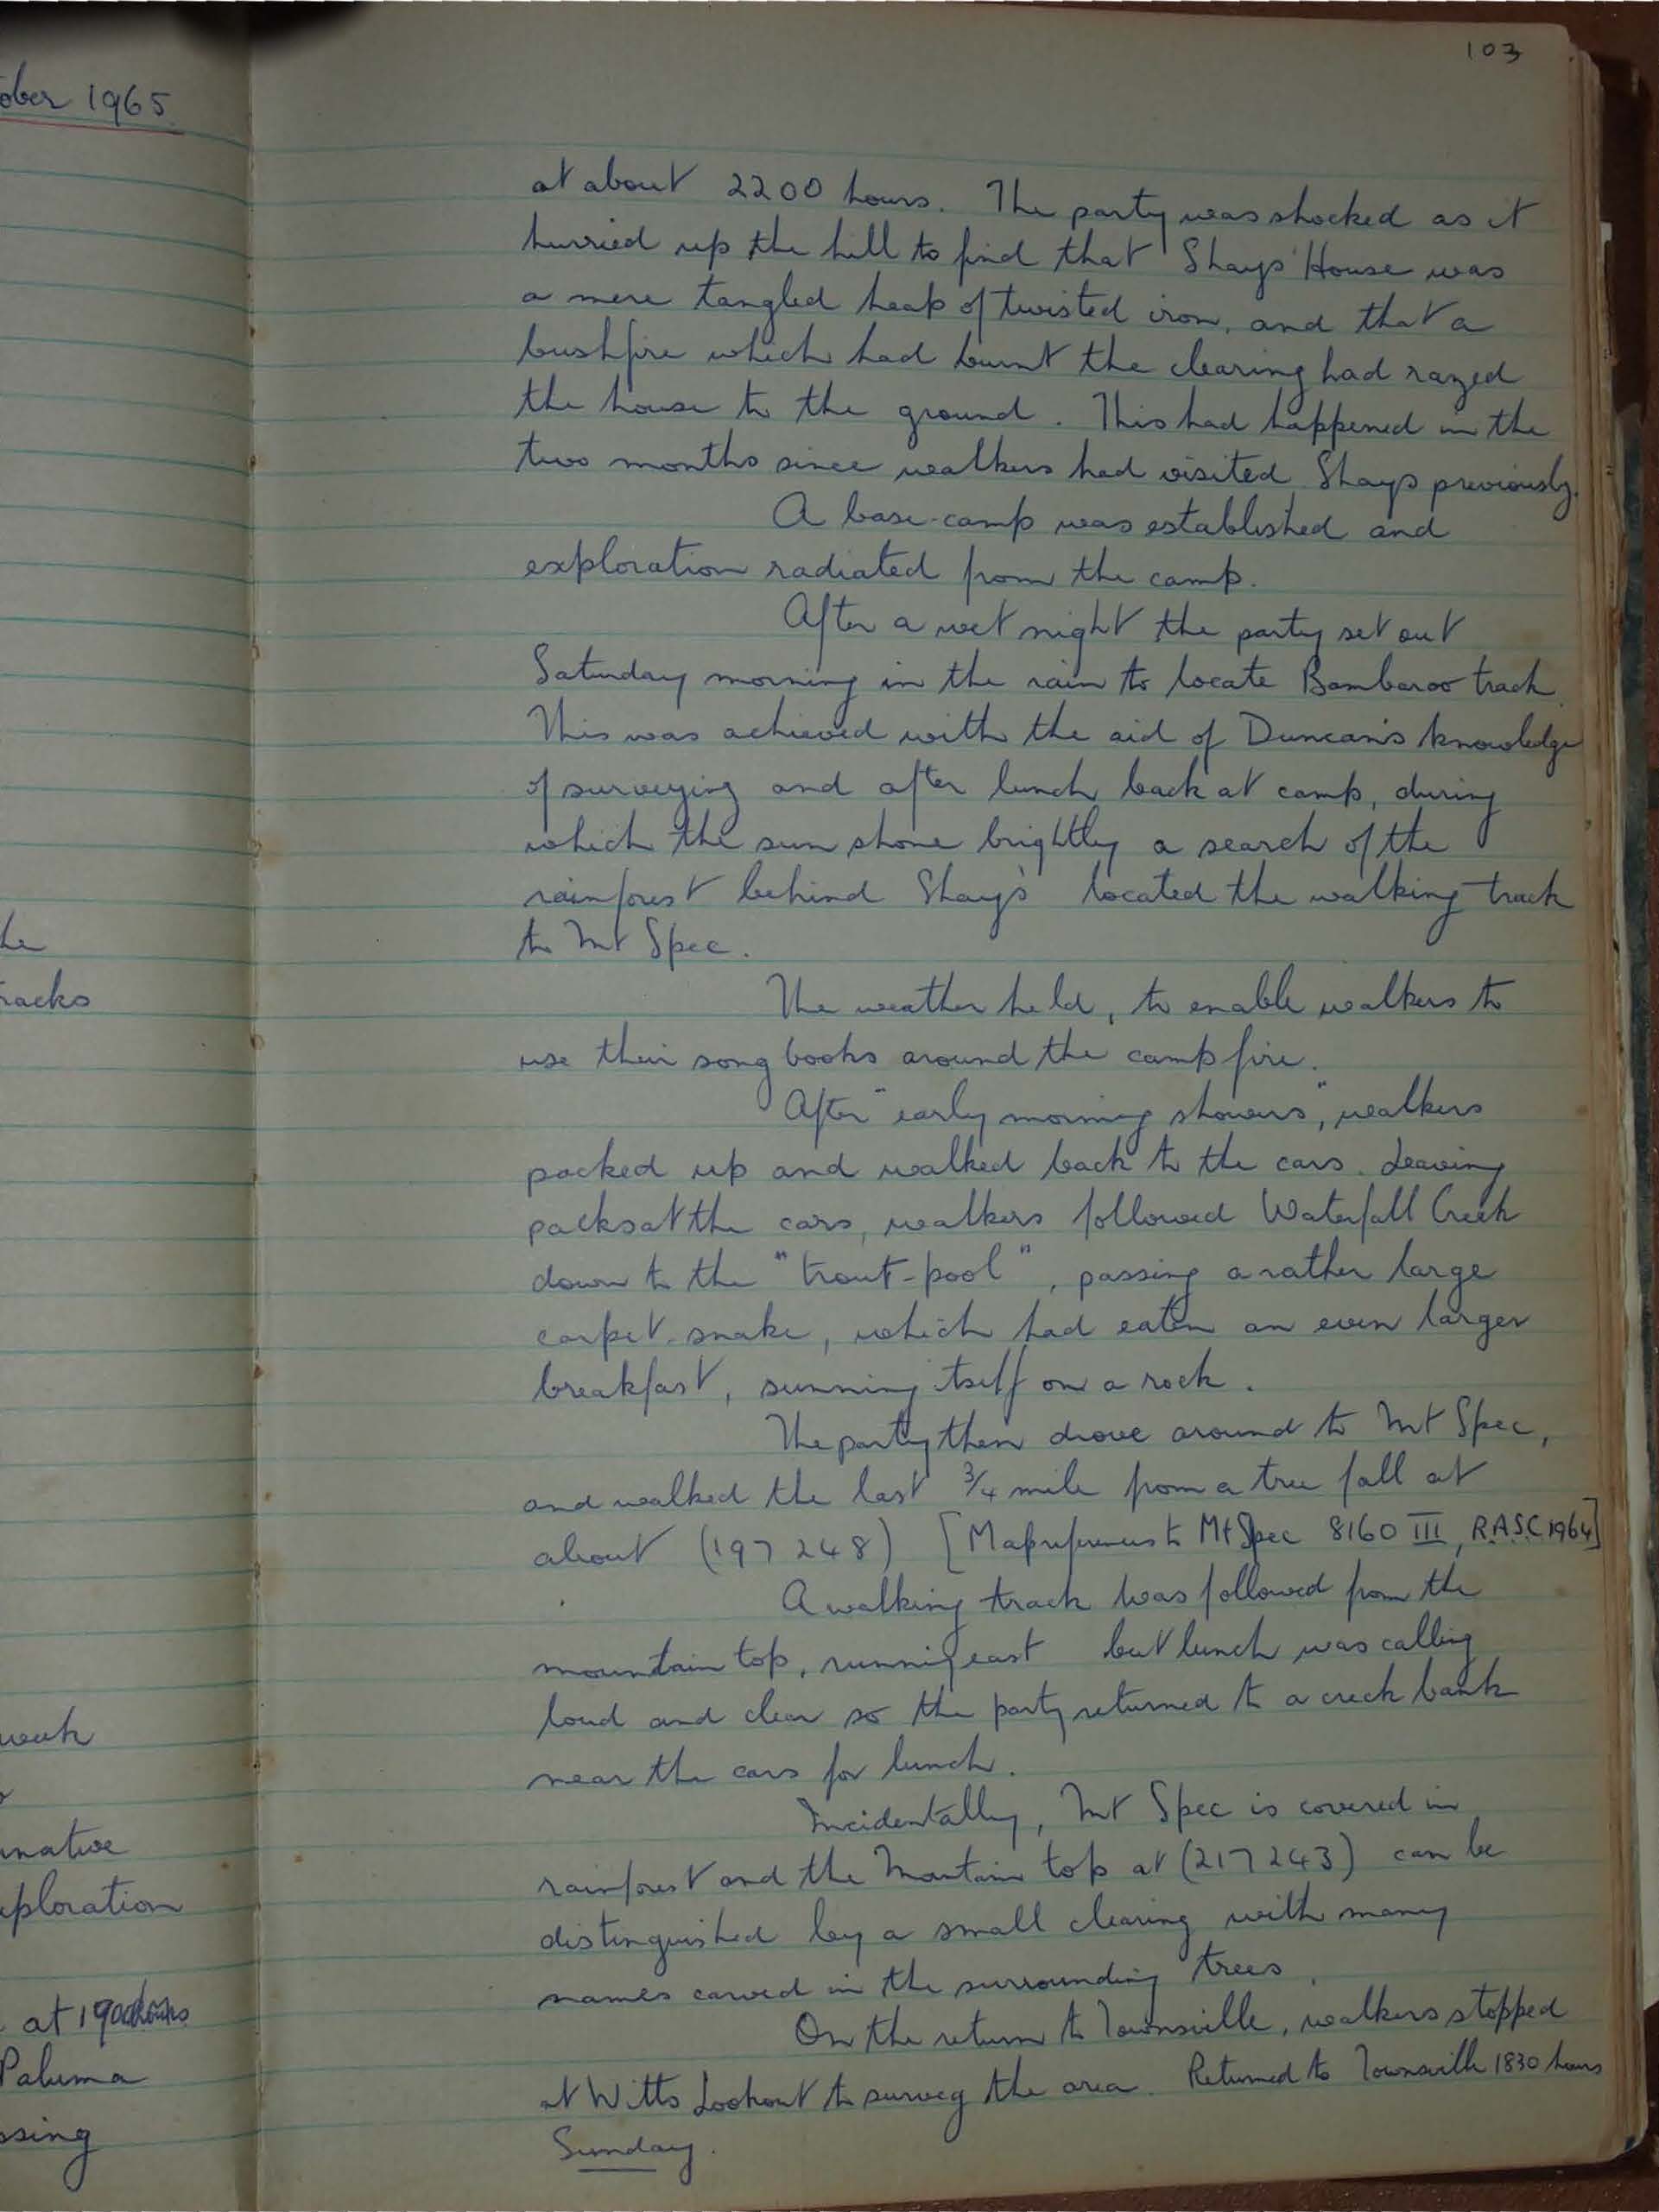 103
ober 1965
at about 2200 hours. The party was shocked as it
hurried up the hill to find that Shays' House was
a mere tangled heap of twisted iron, and that a
bushfire which had burnt the clearing had razed
the house to the ground. This had happened in the
two months since walkers had visited Shays previously.
A base-camp was established and
exploration radiated from the camp.
After a wet night the party set out
Saturday morning in the rain to locate Bambaroo track.
This was achieved with the aid of Duncan's knowledge
of surveying and after lunch back at camp, during
which the sun shone brightly a search of the
rainforest behind Shay's located the walking track
to Mt Spec.
The weather held, to enable walkers to
use their song books around the camp fire.
After "early morning showers", walkers
packed up and walked back to the cars. Leaving
packs at the cars, walkers followed Waterfall Creek
down to the "trout-pool", passing a rather large
carpet-snake, which had eaten an even larger
breakfast, sunning itself on a rock.
The party then drove around to Mt Spec,
and walked the last 3/4 mile from a tree fall at
about (197 248) [Map references to Mt Spec 8160 III, R.A.S.C 1964]
A walking track was followed from the
mountain top, running east but lunch was calling
loud and clear so the party returned to a creek bank
near the cars for lunch.
Incidentally, Mt Spec is covered in
rainforest and the Mountain top at (217 243) can be
distinguished by a small clearing with many
names carved in the surrounding trees.
On the return to Townsville, walkers stopped
at Witts Lookout to survey the area. Returned to Townsville 1830 hours
Sunday.
he
racks
week
native
xploration
at 1900 hours
Paluma
ssing